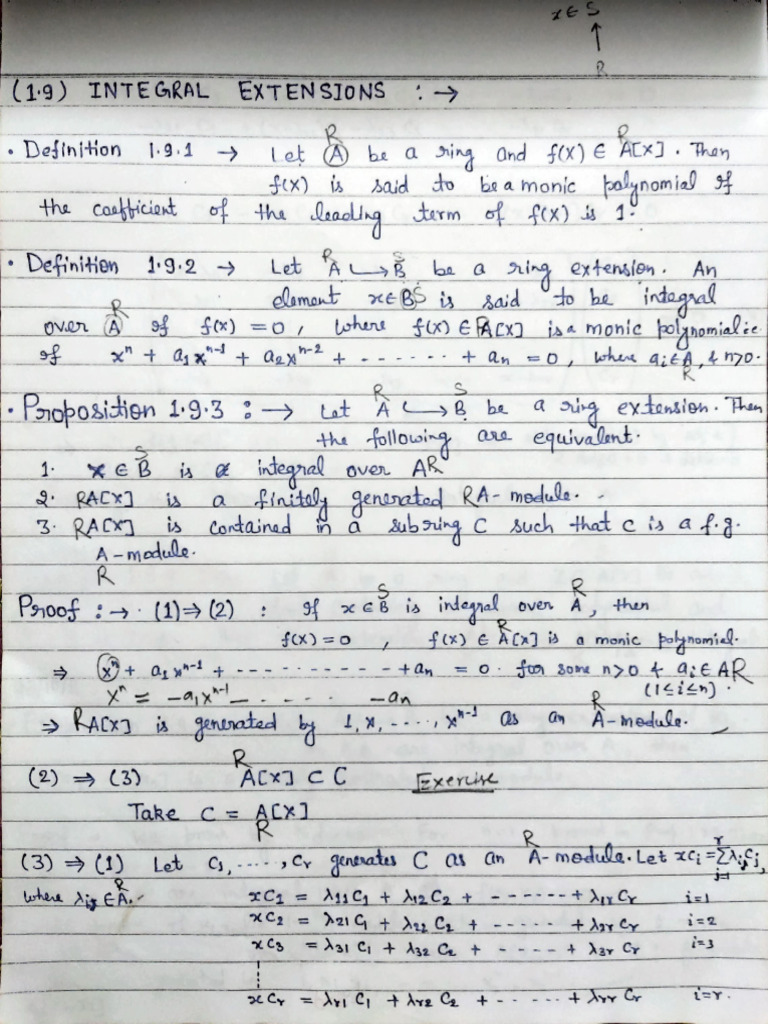 x ∈ S
↑
R
(1.9) INTEGRAL EXTENSIONS : →
R R
• Definition 1.9.1 → Let A be a ring and f(X) ∈ A[X]. Then
f(X) is said to be a monic polynomial if
the coefficient of the leading term of f(X) is 1.
R S
• Definition 1.9.2 → Let A ↪ B be a ring extension. An
element x ∈ B S is said to be integral
R
over A if f(x) = 0, where f(X) ∈ RA[X] is a monic polynomial i.e.
if xⁿ + a₁xⁿ⁻¹ + a₂xⁿ⁻² + ------- + aₙ = 0, where aᵢ ∈ A, & n>0.
R
R S
• Proposition 1.9.3 : → Let A ↪ B be a ring extension. Then
the following are equivalent.
S
1. x ∈ B is integral over A R
2. RA[X] is a finitely generated RA-module.
3. RA[X] is contained in a subring C such that C is a f.g.
A-module.
R
S R
Proof : → . (1) ⇒ (2) : If x ∈ B is integral over A, then
R
f(x) = 0 , f(X) ∈ A[X] is a monic polynomial.
⇒ xⁿ + a₁xⁿ⁻¹ + ----------- + aₙ = 0 . for some n>0 & aᵢ ∈ A R
xⁿ = -a₁xⁿ⁻¹ - ..... -aₙ (1≤i≤n).
R
⇒ RA[X] is generated by 1, x, ----, xⁿ⁻¹ as an A-module.
R
(2) ⇒ (3) A[X] ⊂ C Exercise
Take C = A[X]
R
R
(3) ⇒ (1) Let C₁, -----, Cᵣ generates C as an A-module. Let xcᵢ = ʳ∑ⱼ₌₁ λᵢⱼCⱼ,
R
where λᵢⱼ ∈ A. xC₁ = λ₁₁C₁ + λ₁₂C₂ + ------ + λ₁ᵣCᵣ i=1
xC₂ = λ₂₁C₁ + λ₂₂C₂ + ----- + λ₂ᵣCᵣ i=2
xC₃ = λ₃₁C₁ + λ₃₂C₂ + ----- + λ₃ᵣCᵣ i=3
xCᵣ = λᵣ₁C₁ + λᵣ₂C₂ + ----- + λᵣᵣCᵣ i=r.